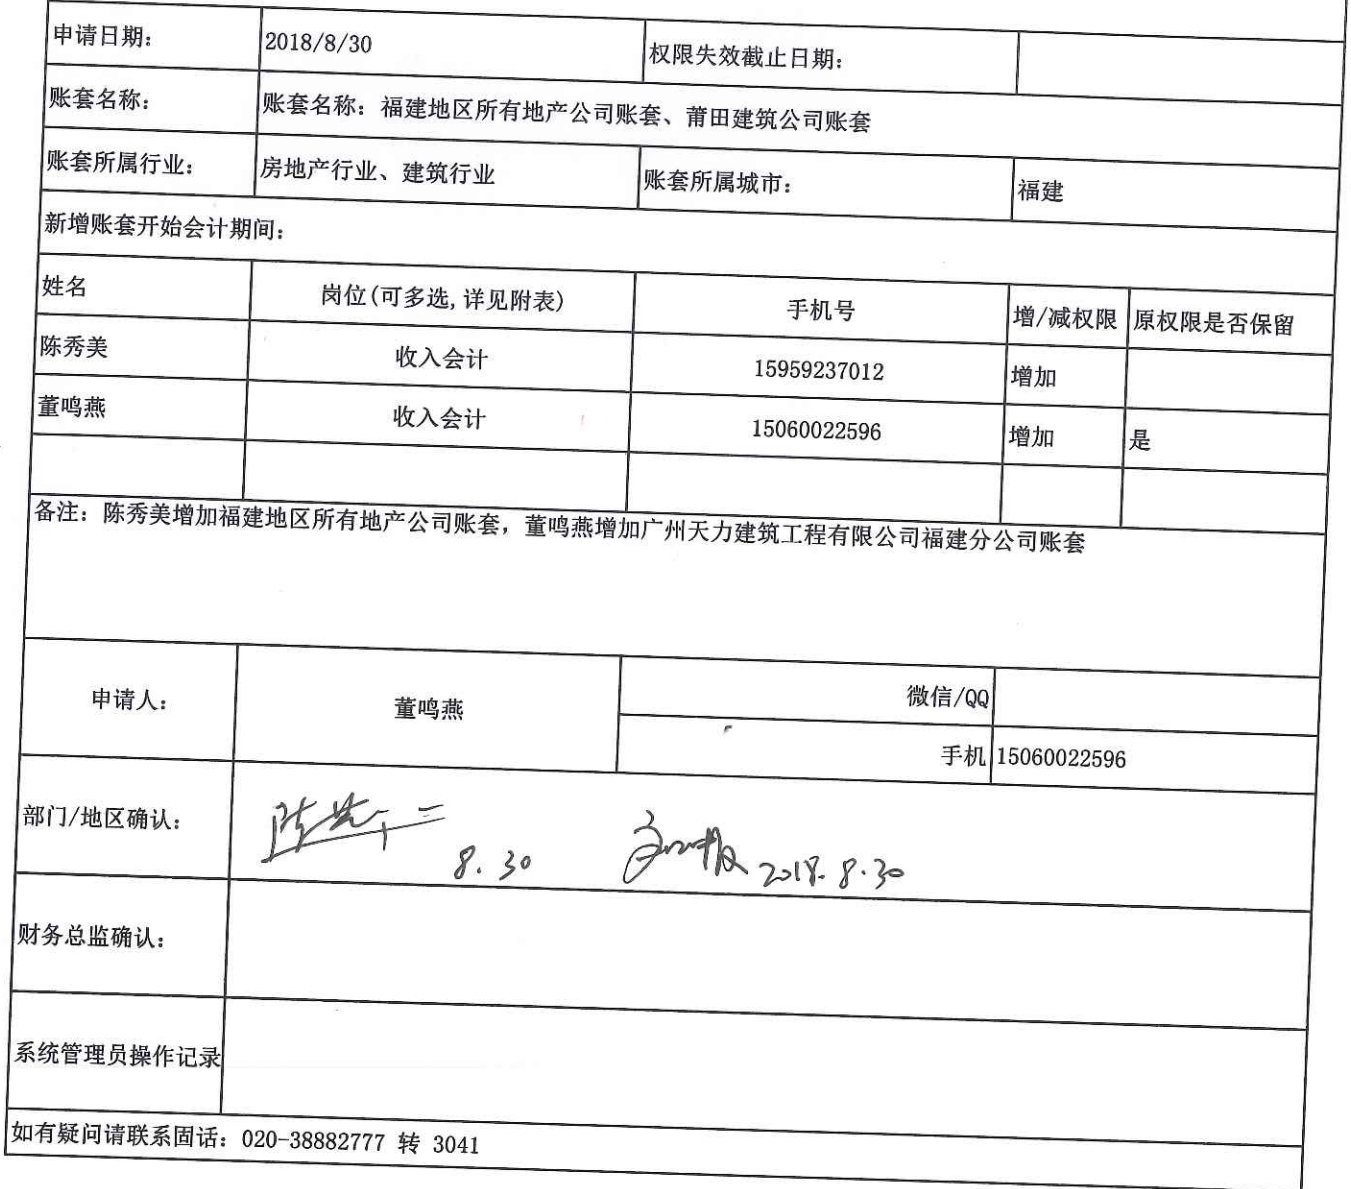 申请日期： 2018/8/30 权限失效截止日期：
账套名称： 账套名称：福建地区所有地产公司账套、莆田建筑公司账套
账套所属行业： 房地产行业、建筑行业 账套所属城市： 福建
新增账套开始会计期间：
姓名 岗位(可多选,详见附表) 手机号 增/减权限 原权限是否保留
陈秀美 收入会计 15959237012 增加
董鸣燕 收入会计 15060022596 增加 是
备注：陈秀美增加福建地区所有地产公司账套，董鸣燕增加广州天力建筑工程有限公司福建分公司账套
申请人： 董鸣燕 微信/QQ
手机 15060022596
部门/地区确认： 8.30 2018.8.30
财务总监确认：
系统管理员操作记录
如有疑问请联系固话：020-38882777 转 3041